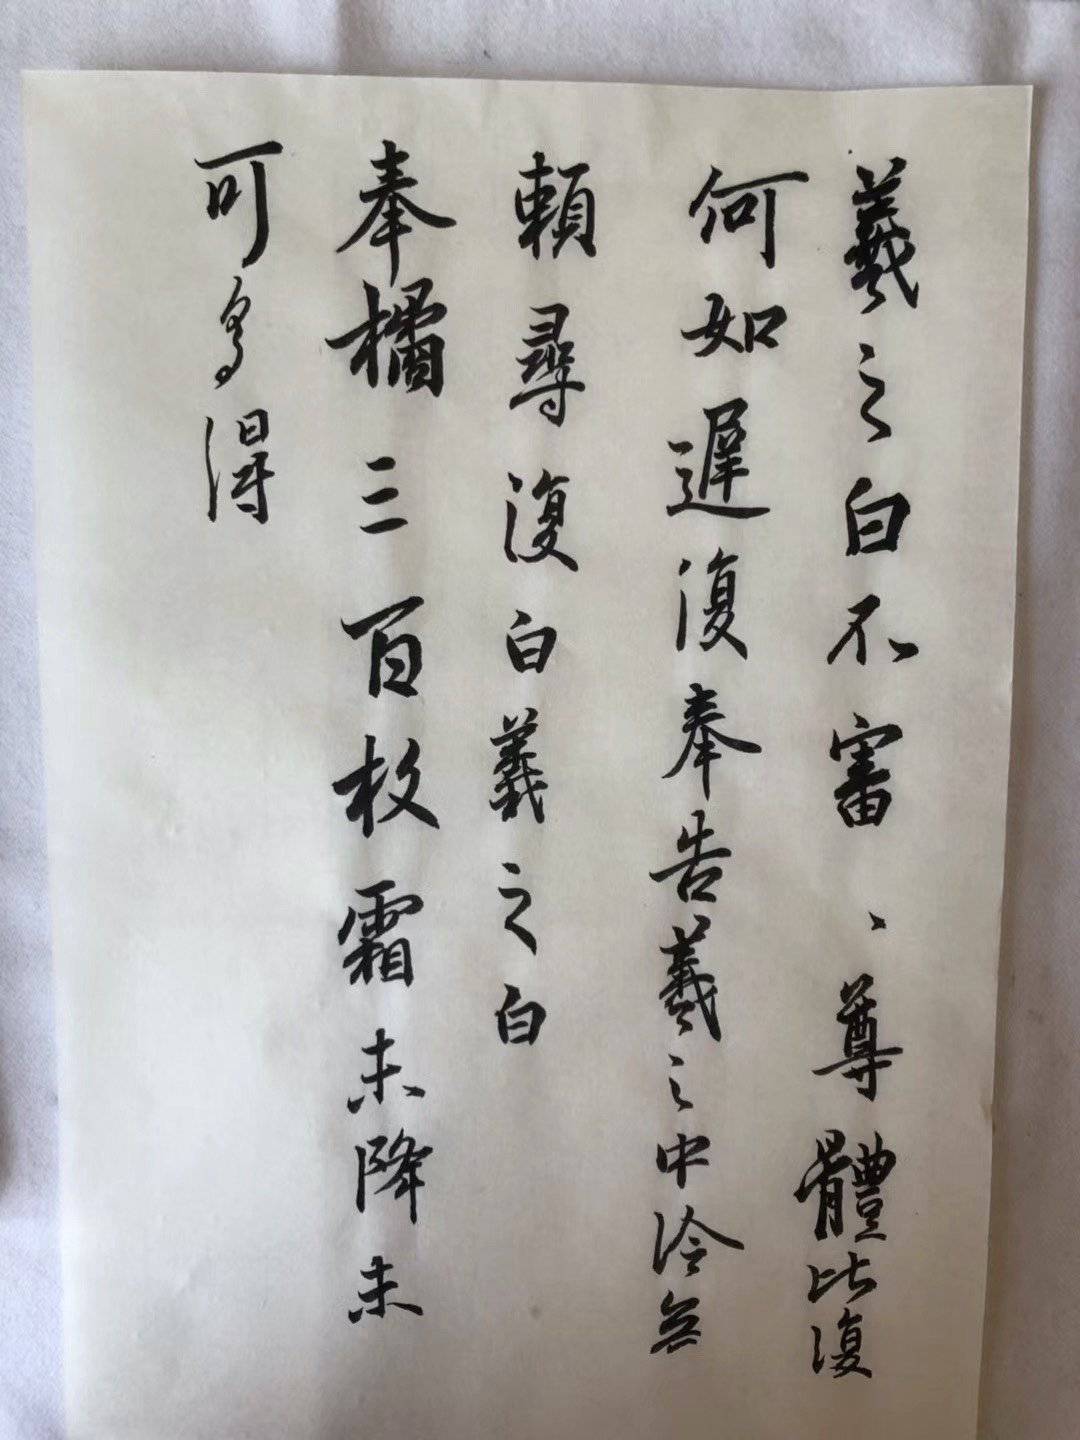 羲之白不審、尊體比復
何如遲復奉告羲之中冷無
賴尋復白羲之白
奉橘三百枚霜未降未
可多得